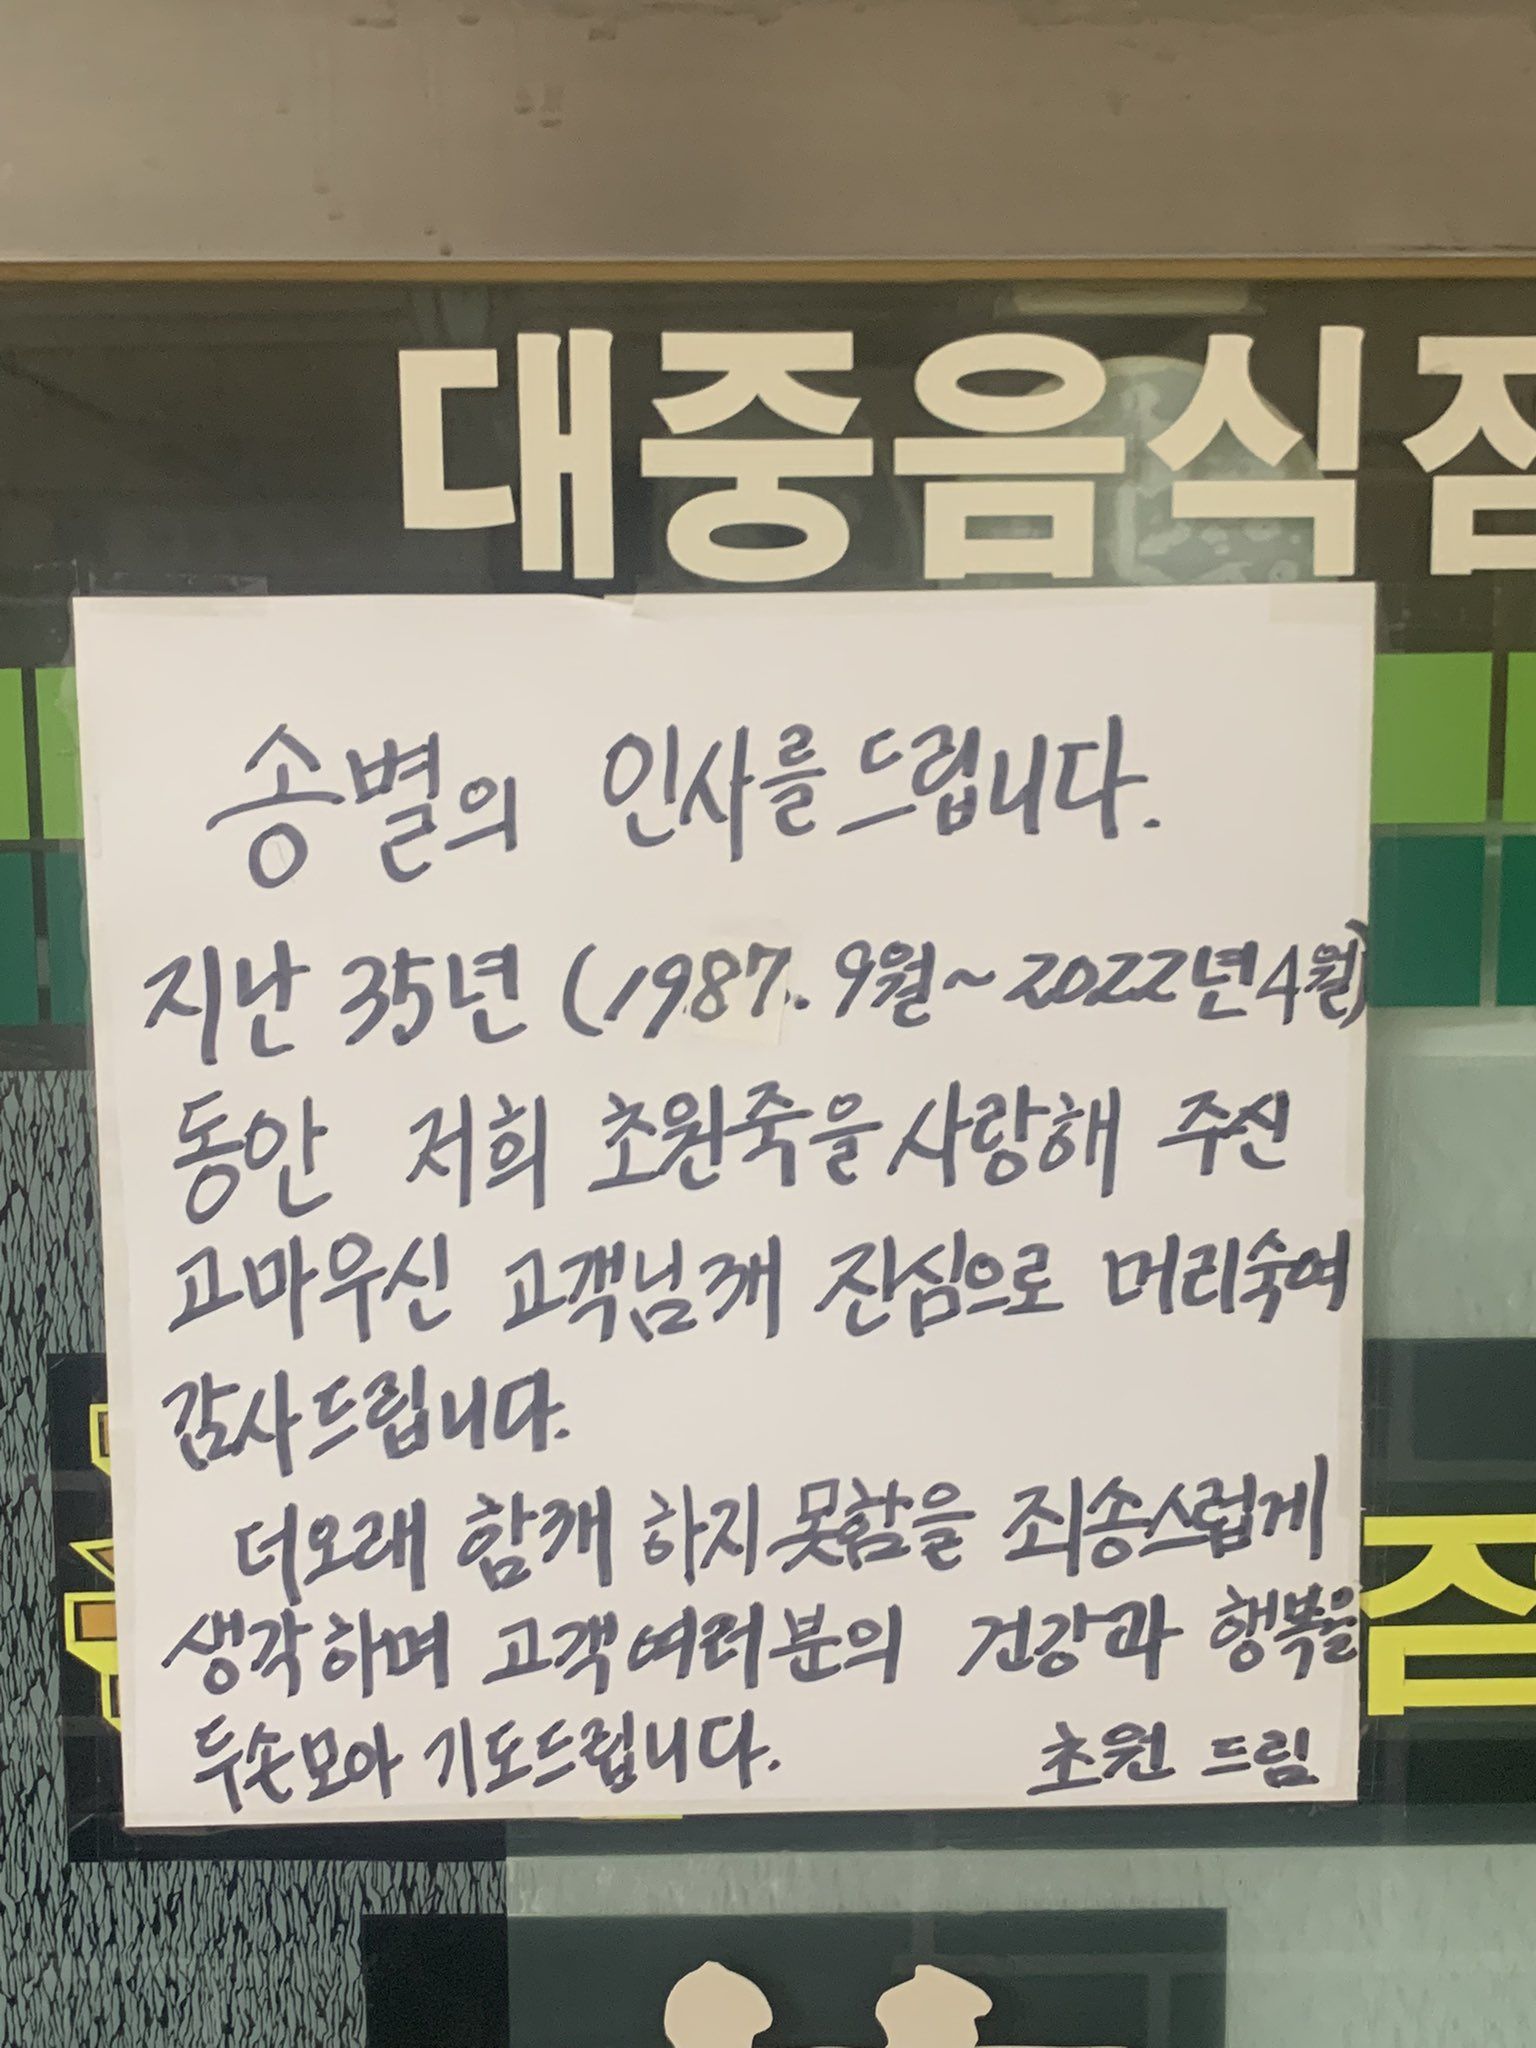 대중음식점
송별의 인사를 드립니다.
지난 35년 (1987. 9월~2022년 4월)
동안 저희 초원죽을 사랑해 주신
고마우신 고객님께 진심으로 머리숙여
감사드립니다.
더오래 함께 하지 못함을 죄송스럽게
생각하며 고객여러분의 건강과 행복을
두손모아 기도드립니다. 초원 드림